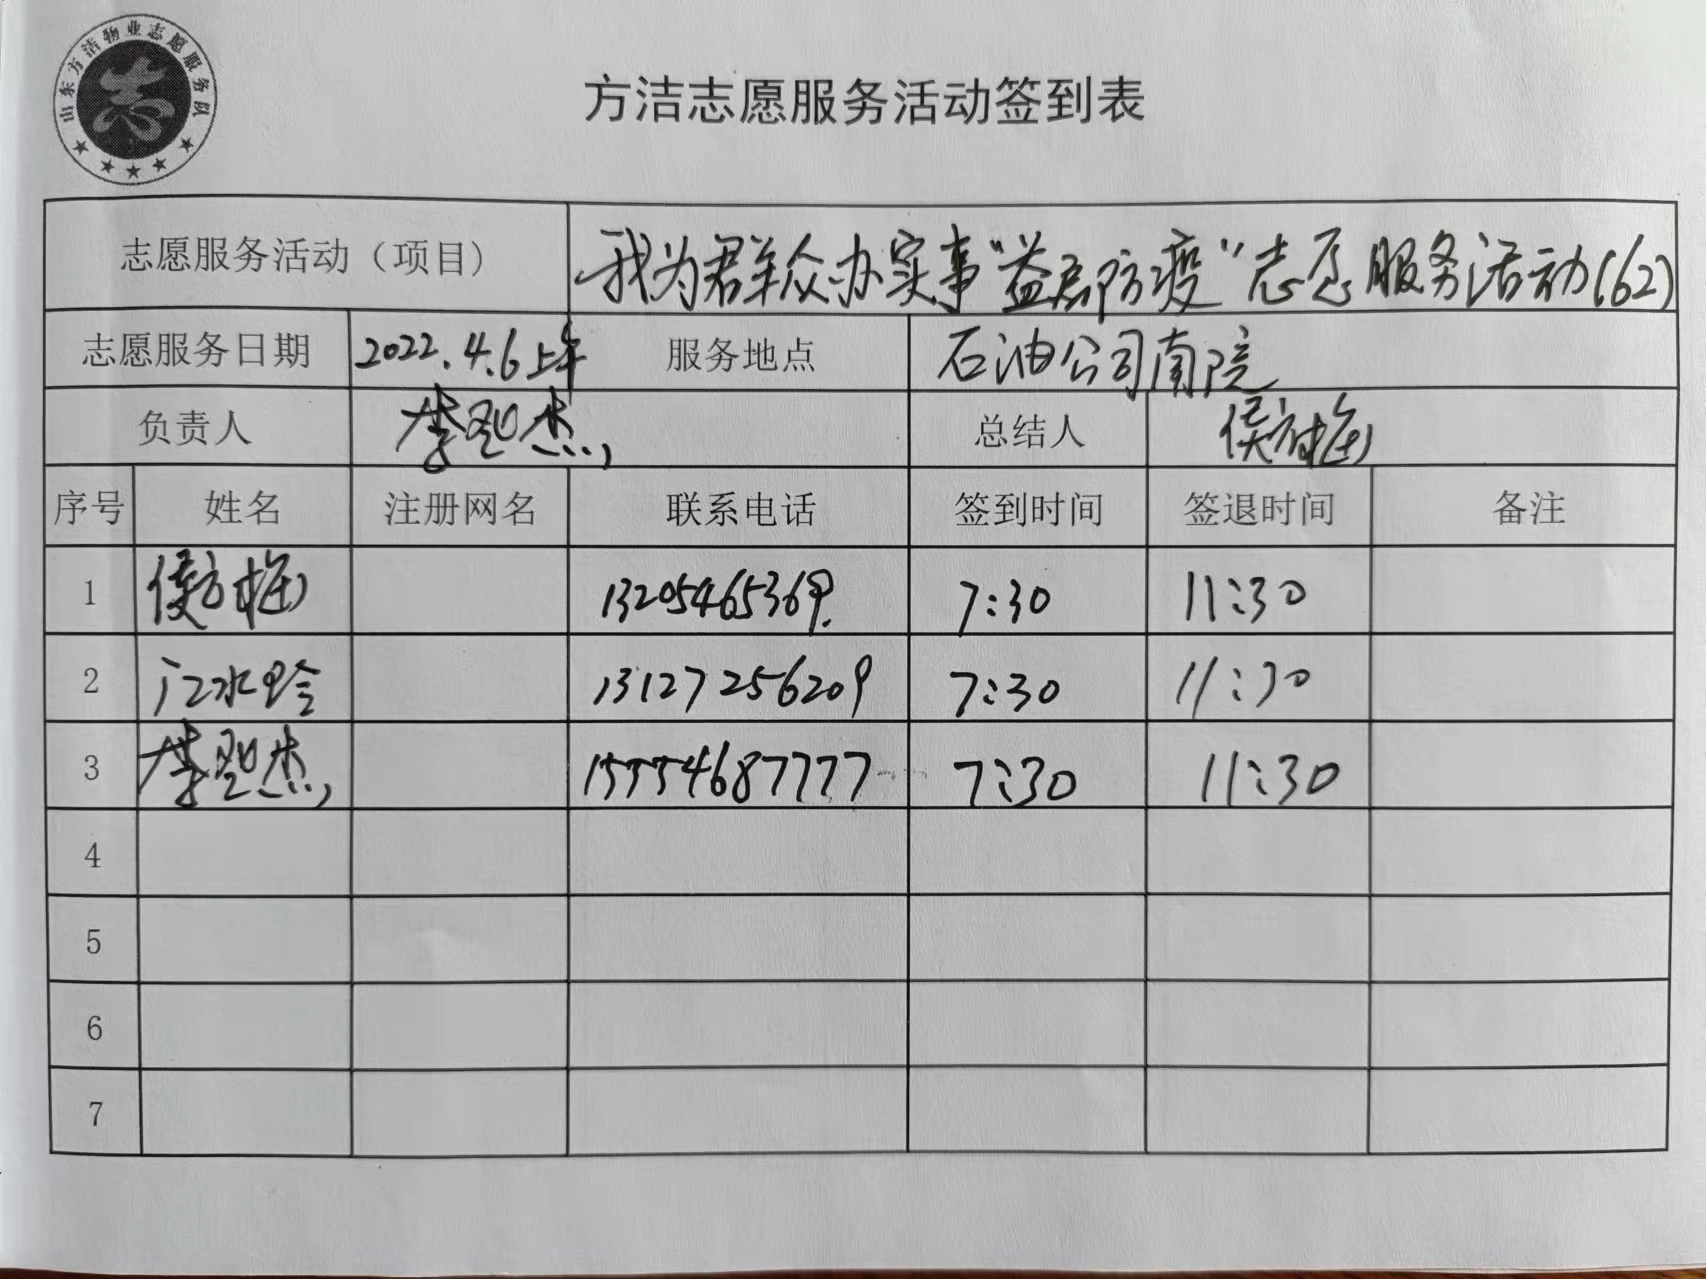 山东方洁物业志愿服务队
志
方洁志愿服务活动签到表
志愿服务活动（项目） 我为群众办实事“益启防疫”志愿服务活动(62)
志愿服务日期 2022.4.6上午 服务地点 石油公司南院
负责人 李圣杰 总结人 侯方梅
序号 姓名 注册网名 联系电话 签到时间 签退时间 备注
1 侯方梅 13205465369 7:30 11:30
2 江水玲 13127256209 7:30 11:30
3 李圣杰 15554687777 7:30 11:30
4
5
6
7